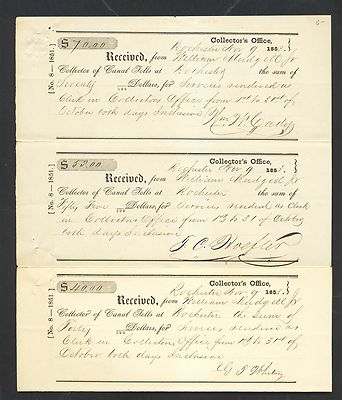 6
$ 70.00
Collector's Office,
Rochester Nov 9 185
[No. 8—1851.]
Received, from William Mudgett Jr
Collector of Canal Tolls at Rochester the sum of
Seventy 100 Dollars, for Services rendered as
Clerk in Collectors Office from 1st to 31st of
October both days Inclusive
Wm H Cady
$ 55.00
Collector's Office,
Rochester Nov 9 185
[No. 8—1851.]
Received, from William Mudgett Jr
Collector of Canal Tolls at Rochester the sum of
Fifty Five 100 Dollars, for Services rendered as Clerk
in Collectors Office from 1st to 31 of October
both days Inclusive
$ 40.00
Collector's Office,
Rochester Nov 9 185
[No. 8—1851.]
Received, from William Mudgett Jr
Collector of Canal Tolls at Rochester the sum of
Forty 100 Dollars, for Services rendered as
Clerk in Collectors Office from 1st to 31st of
October both days Inclusive